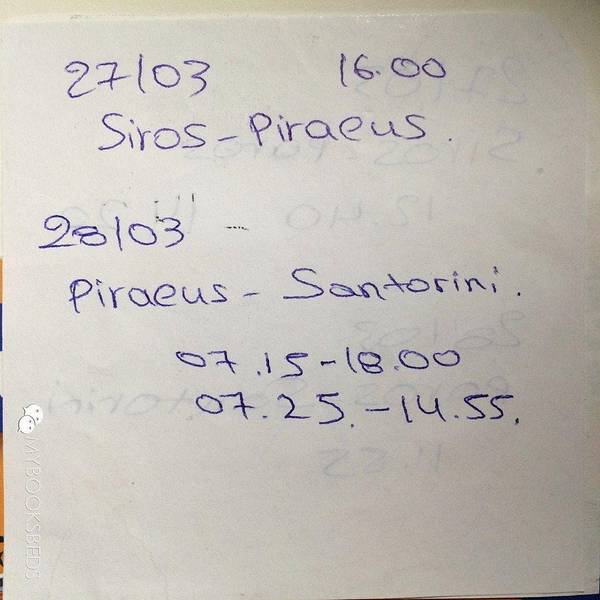 27/03 16.00
Siros - Piraeus.
28/03 -
Piraeus - Santorini.
07.15 - 18.00
07.25. - 14.55.
MYBOOKSBEDS